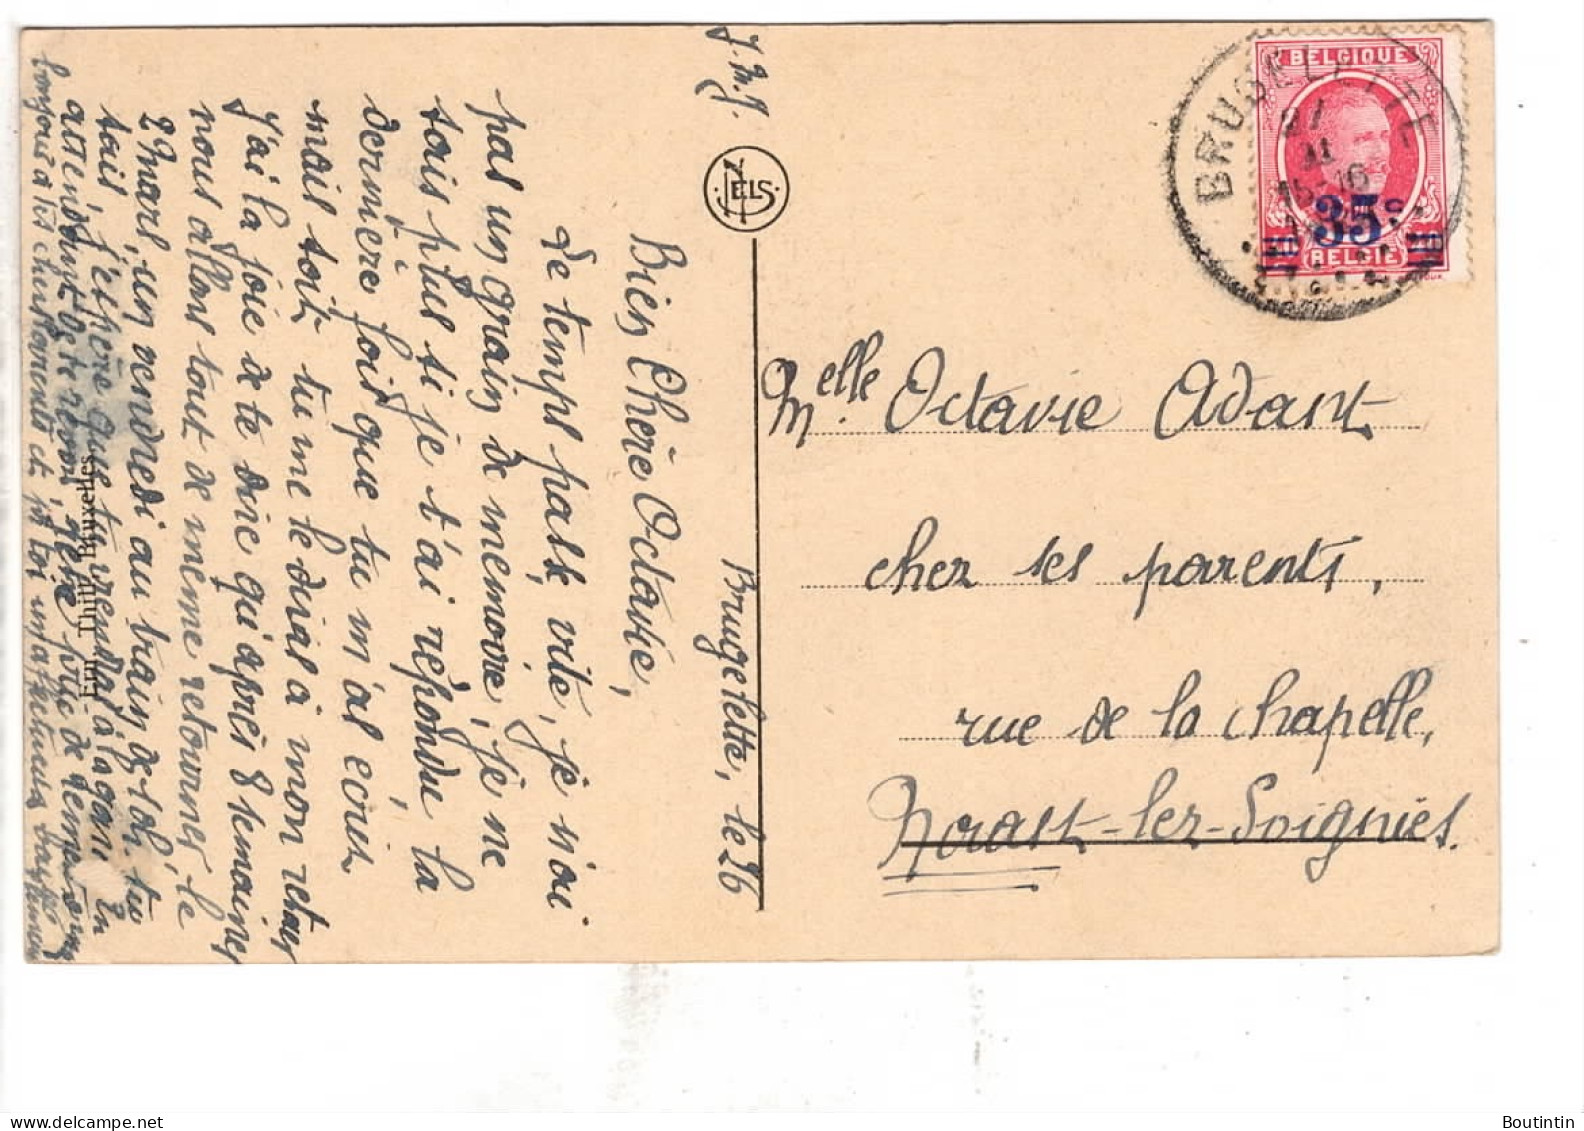 J.M.J.
Brugelette, le 26
Bien Chère Octavie,
De temps passe vite, je n'ai
pas un grain de memoire, je ne
sais plus si je t'ai répondu la
dernière fois que tu m'as ecris
mais soit tu me le diras à mon retour
J'ai la joie de te dire qu'après 8 semaines
nous allons tout de même retourner le
2 mars, un vendredi au train de
sais, j'espère que tu viendras à la gare en
attendant de te revoir,
bonjour à tes chers parents et à toi
NELS
Ern. Thill, Bruxelles
BELGIQUE
35c
BELGIË
BRUGELETTE
15-16
Melle Octavie Adant
chez ses parents,
rue de la chapelle,
Horast-lez-Soignies.
Boutintin
delcampe.net